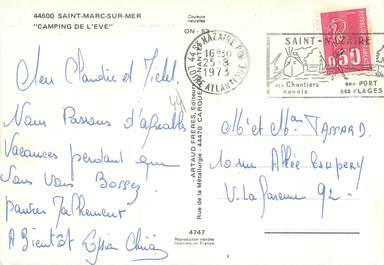 44600 SAINT-MARC-SUR-MER
"CAMPING DE L'EVE"
Couleurs
naturelles
Chers Claudie et
Nous Passons d'agréables
Vacances pendant que
Vous Vous Bossez
pauvres
A Bientôt
ARTAUD FRÈRES, Éditeurs
Rue de la Métallurgie - 44470 CARQUEFOU
4747
Reproduction interdite
Imprimé en France
44 ST NAZAIRE PPAL
16H30
25-8
1973
LOIRE ATLANTIQUE
SAINT-NAZAIRE
SES Chantiers
navals
SON PORT
SES PLAGES
0,50
Mr et Mme
10 rue Allée
V. La Garenne 92